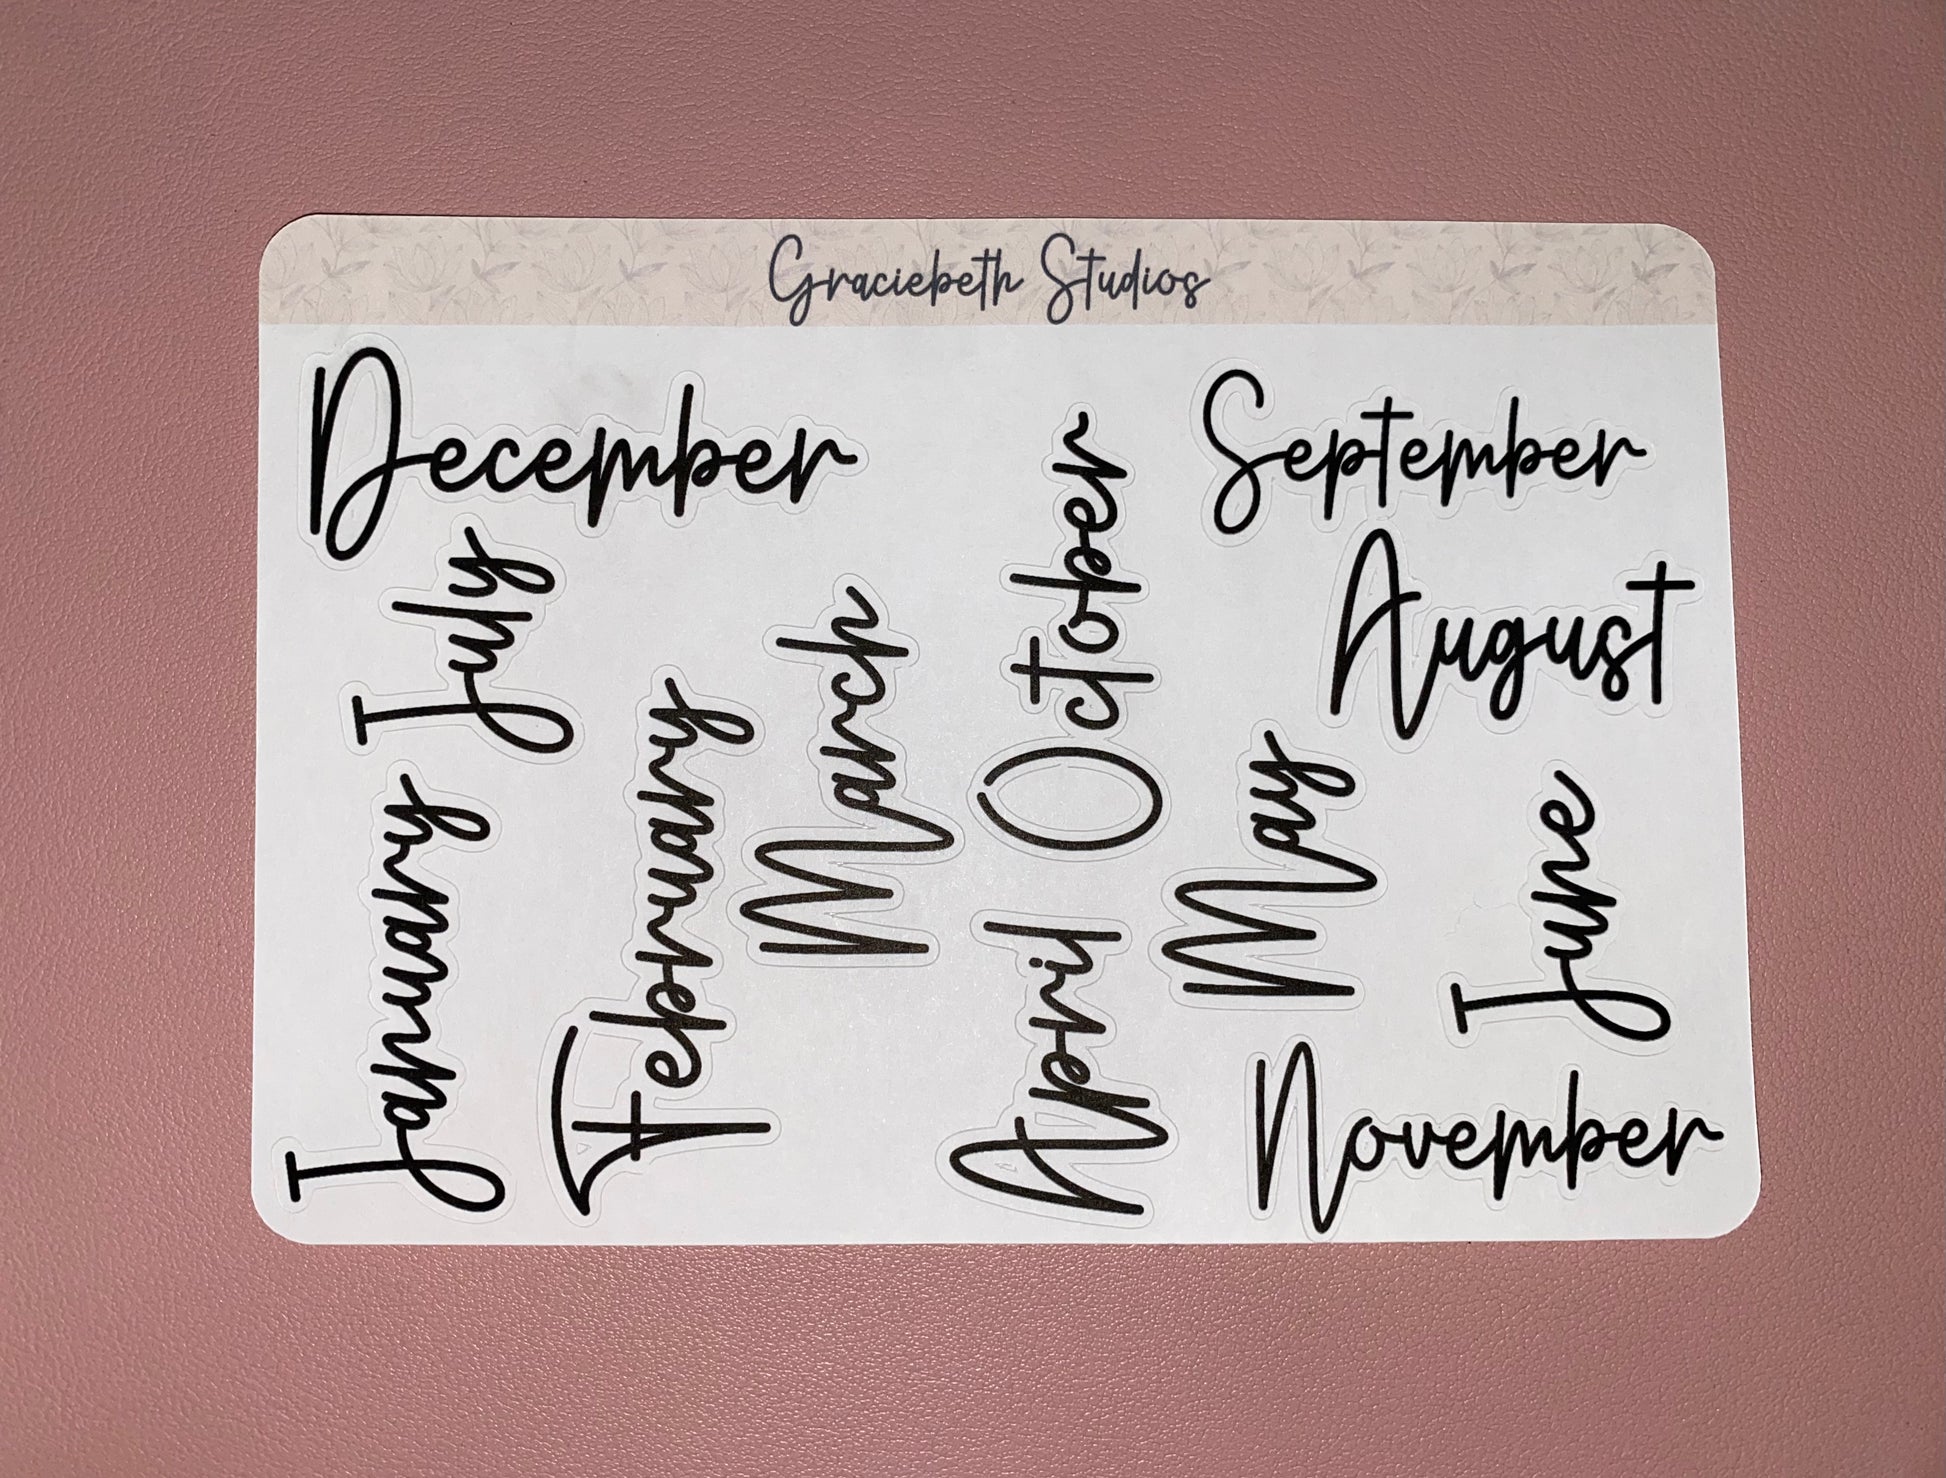 Graciebeth Studios
December
September
July
October
August
March
January
February
May
June
April
November